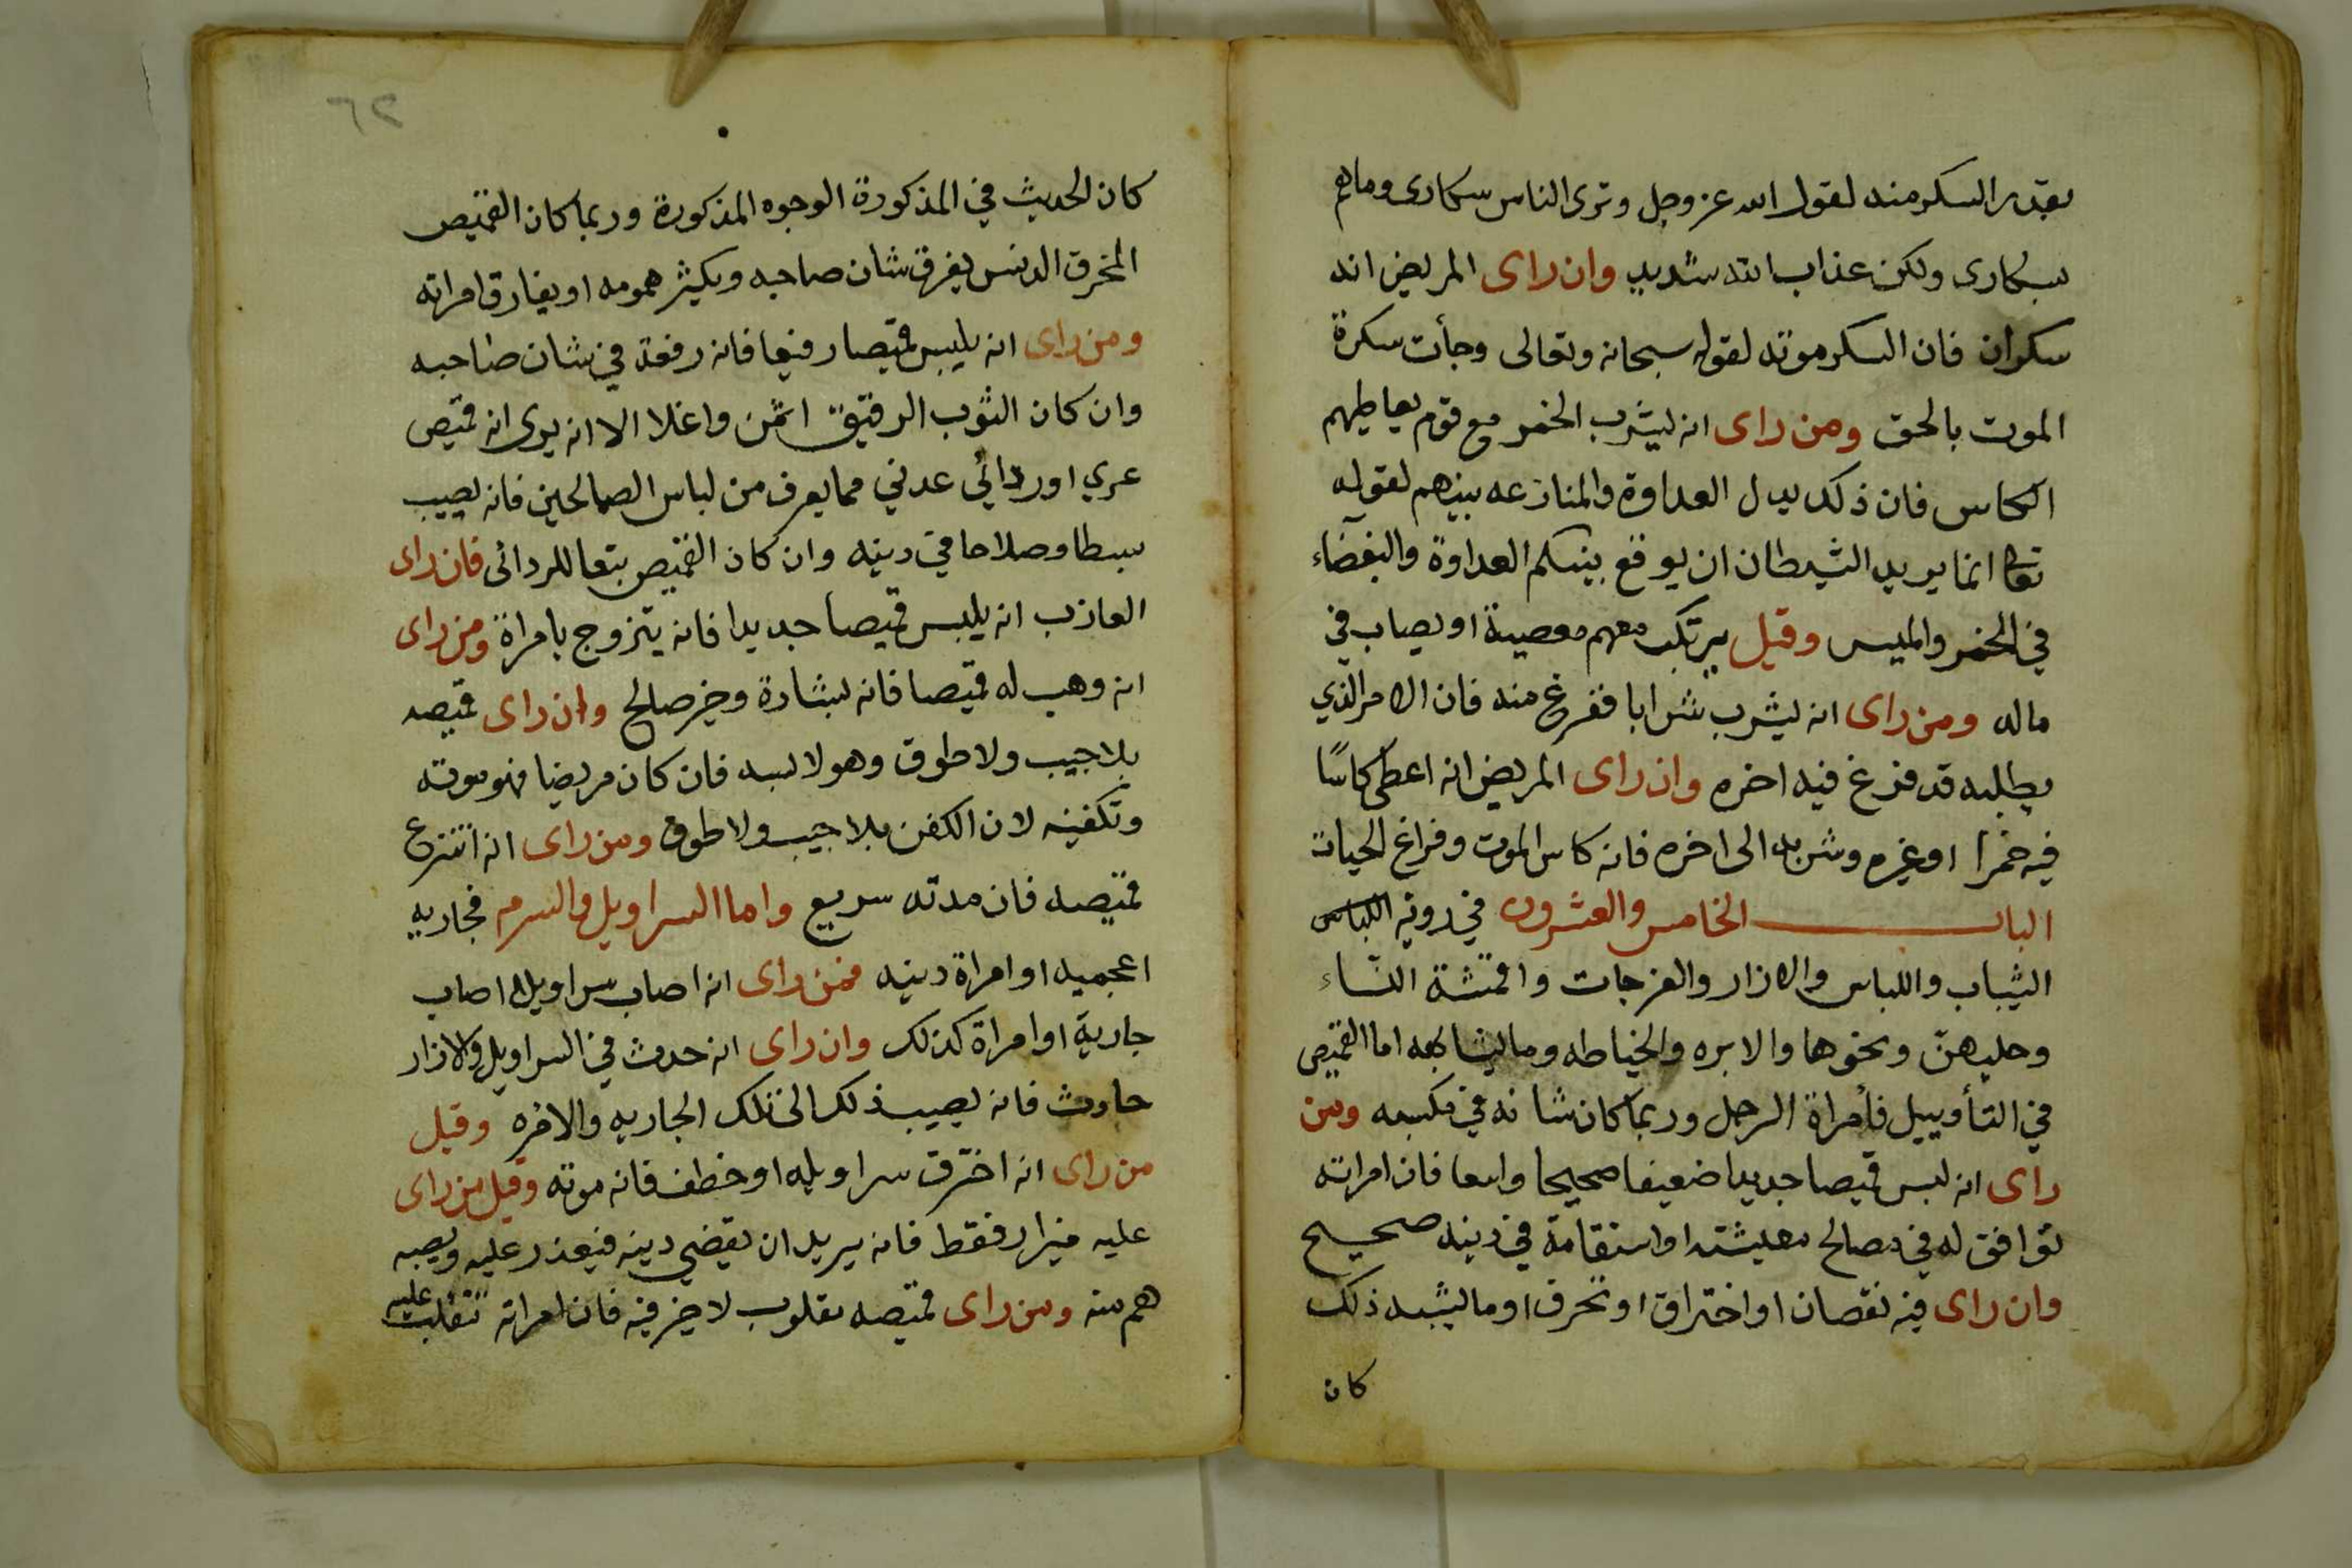 بقدر السكر منه لقول الله عز وجل وترى الناس سكارى وما هم
بسكارى ولكن عذاب الله شديد وان راى المريض انه
سكران فان السكر موته لقوله سبحانه وتعالى وجأت سكرة
الموت بالحق ومن راى انه ليشرب الخمر مع قوم يعاطيهم
الكاس فان ذلك يدل العداوة والمنازعه بينهم لقوله
تعالى انما يريد الشيطان ان يوقع بينكم العداوة والبغضاء
في الخمر والميسر وقيل يرتكب معهم معصية او يصاب في
ماله ومن راى انه ليشرب شرابا ففرغ منه فان الامر الذي
يطلبه قد فرغ فيه اخره وان راى المريض انه اعطى كاسًا
فيه خمرا او غيره وشربه الى اخره فانه كاس الموت وفراغ الحيات
الباب الخامس والعشرون في روية اللباس
الثياب واللباس والازار والفرجات واقمشة النساء
وحليهنّ ونحوها والابره والخياطه وما ليشابهه اما القميص
في التأوييل فأمراة الرجل وربما كان شانه في مكسبه ومن
راى انه لبس قميصا جديدا ضعيفا صحيحا واسعا فان امراته
توافق له في مصالح معيشته او استقامة في دينه صحيح
وان راى فيه نقصان او اختراق او تحرف او ما ليشبه ذلك
كان
٦٢
كان الحديث في المذكورة الوجوه المذكورة وربما كان القميص
المخرق الدنس يفرق شان صاحبه ويكثر همومه او يفارق امراته
ومن راى انه يلبس قميصا رفيعا فانه رفعة في شان صاحبه
وان كان الثوب الرقيق اثمن واغلا الا انه يرى انه قميص
عري او ردائي عدني مما يعرف من لباس الصالحين فانه لصيب
بسطا وصلاحا في دينه وان كان القميص بتعا للردائى فان راى
العازب انه يلبس قميصا جديدا فانه يتزوج بامراة ومن راى
انه وهب له قميصا فانه لبشارة وخير صالح وان راى قميصه
بلا جيب ولا طوق وهو لا لبسه فان كان مريضا فهو موته
وتكفينه لان الكفن بلا جيب ولا طوق ومن راى انه انتزع
قميصه فان مدته سريع واما السراويل والسرم فجاريه
اعجميه او امراة دينه فمن راى انه اصاب سراويلا اصاب
جارية او امراة كذلك وان راى انه حدث في السراويل والازار
حادث فانه لصيب ذلك الى تلك الجاريه والاخره وقيل
من راى انه اخترق سراويله او خطف فانه موته وقيل من راى
عليه ميزار فقط فانه يريد ان يقضي دينه فيعذر عليه ويصبه
هم منه ومن راى قميصه مقلوب لا خير فيه فان امراته تنقلب عليه